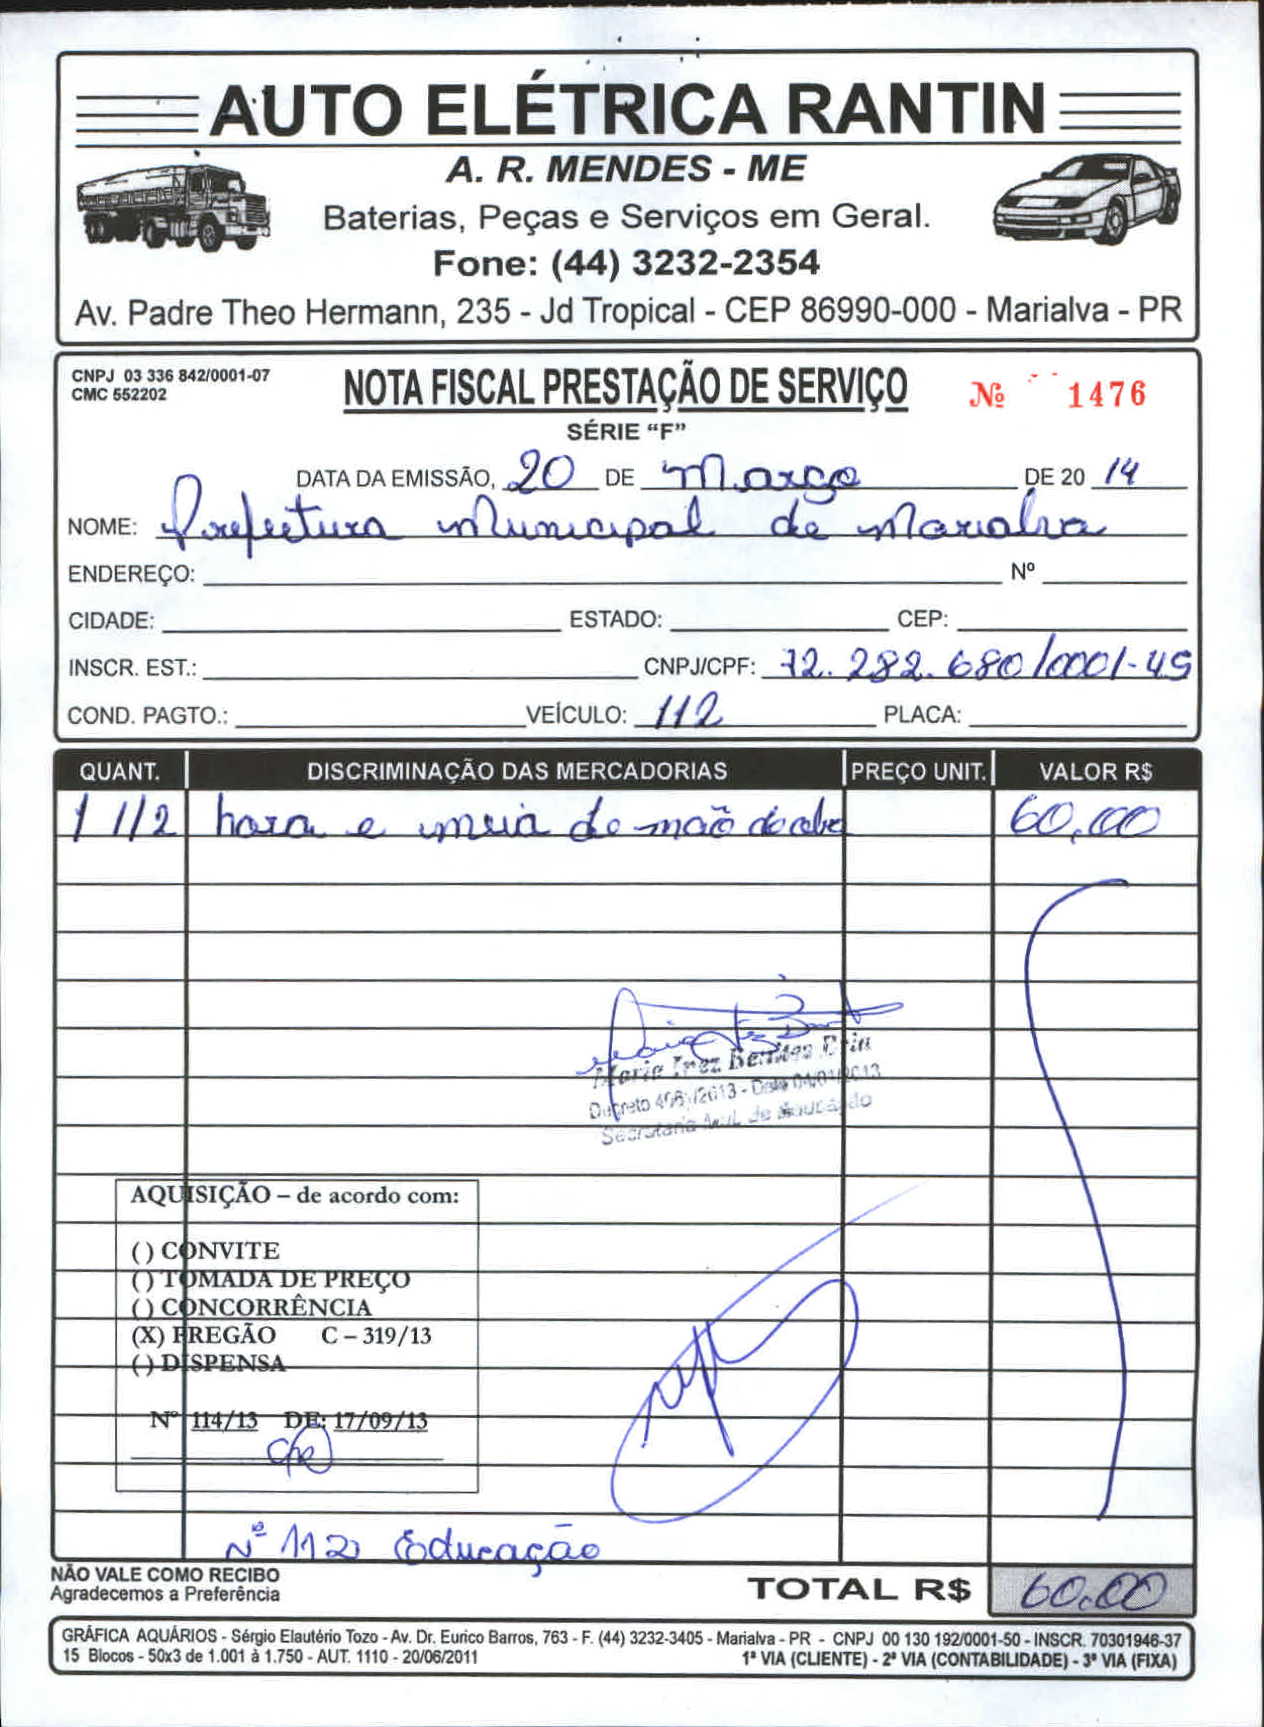 AUTO ELÉTRICA RANTIN
A. R. MENDES - ME
Baterias, Peças e Serviços em Geral.
Fone: (44) 3232-2354
Av. Padre Theo Hermann, 235 - Jd Tropical - CEP 86990-000 - Marialva - PR
CNPJ 03 336 842/0001-07
CMC 552202
NOTA FISCAL PRESTAÇÃO DE SERVIÇO
Nº 1476
SÉRIE “F”
DATA DA EMISSÃO, 20 DE Março DE 20 14
NOME: Prefeitura Municipal de Marialva
ENDEREÇO: Nº
CIDADE: ESTADO: CEP:
INSCR. EST.: CNPJ/CPF: 72.282.680/0001-45
COND. PAGTO.: VEÍCULO: 112 PLACA:
QUANT. DISCRIMINAÇÃO DAS MERCADORIAS PREÇO UNIT. VALOR R$
1 1/2 hora e meia de mão de obra 60,00
Maria Inez
Decreto /2013 - Data 04/01/2013
Secretaria de Educação
AQUISIÇÃO – de acordo com:
( ) CONVITE
( ) TOMADA DE PREÇO
( ) CONCORRÊNCIA
(X) PREGÃO C – 319/13
( ) DISPENSA
Nº 114/13 DE: 17/09/13
Nº 112 Educação
NÃO VALE COMO RECIBO
Agradecemos a Preferência
TOTAL R$ 60,00
GRÁFICA AQUÁRIOS - Sérgio Elautério Tozo - Av. Dr. Eurico Barros, 763 - F. (44) 3232-3405 - Marialva - PR - CNPJ 00 130 192/0001-50 - INSCR. 70301946-37
15 Blocos - 50x3 de 1.001 à 1.750 - AUT. 1110 - 20/06/2011
1ª VIA (CLIENTE) - 2ª VIA (CONTABILIDADE) - 3ª VIA (FIXA)